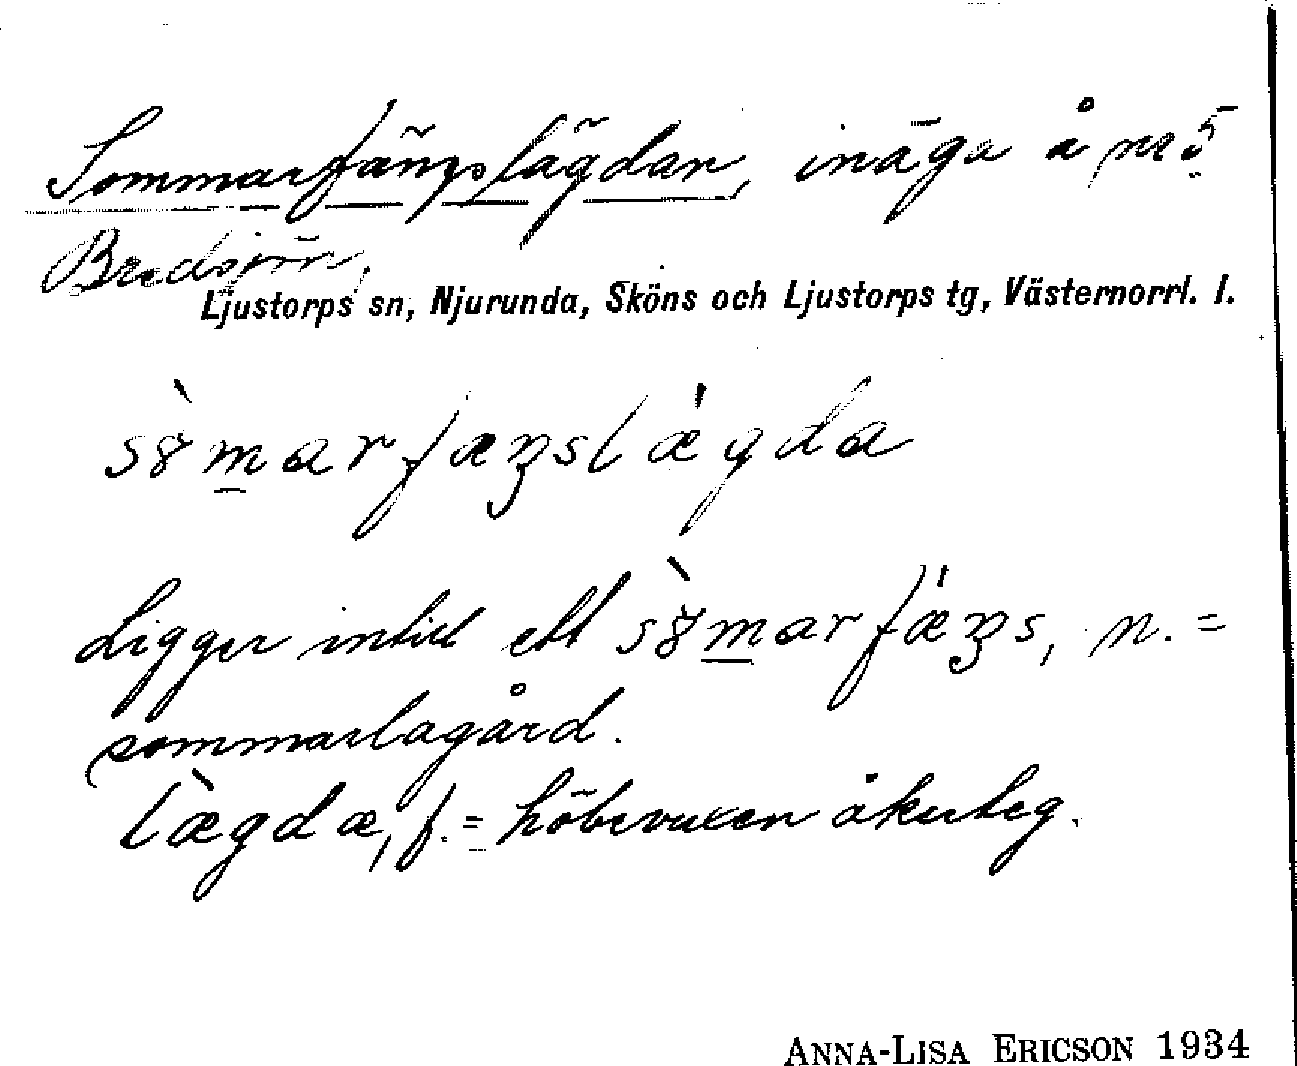 Sommarfängslägdan, inäga å nr 5
Bredsjön,
Ljustorps sn, Njurunda, Sköns och Ljustorps tg, Västernorrl. l.
sꝏ̀marfæŋslǽgda
Ligger intill ett sꝏ̀marfǽŋs, n. =
sommarlagård.
lægda, f. = höbevuxen åkerteg.
ANNA-LISA ERICSON 1934